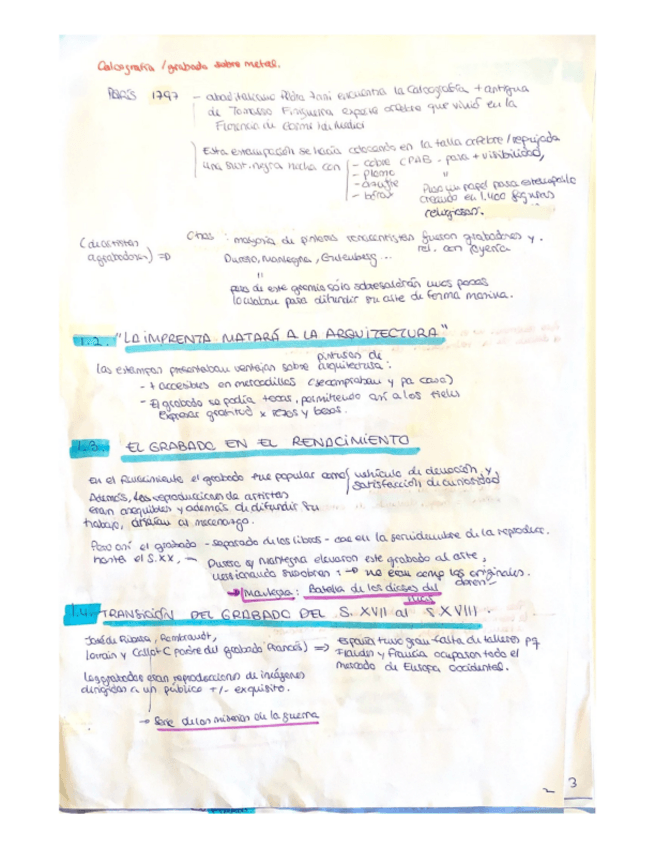 Calcografía / grabado sobre metal.
PARÍS 1797 - abad italiano Pietro Zani encuentra la Calcografía + antigua
de Tomasso Finiguerra experto orfebre que vivió en la
Florencia de Cosme I de Medici
Esta estampación se hacía colocando en la talla orfebre / repujada
una sust. negra hecha con - cobre (PAB - para + visibilidad,
- plomo
- azufre
- bórax
Puso un papel para estamparlo
creando en 1.400 figuras
religiosas.
(de artistas
a grabadores) ⇒
Otros: mayoría de pintores renacentistas fueron grabadores y.
rel. con joyería
Durero, Mantegna, Gutenberg...
"
pero de este gremio sólo sobresaldrán unos pocos
lo usaban para difundir su arte de forma masiva.
1.2. "LA IMPRENTA MATARÁ A LA ARQUITECTURA"
Las estampas presentaban ventajas sobre pinturas de arquitectura:
- + accesibles en mercadillos (se compraban y pa casa)
- El grabado se podía tocar, permitiendo así a los fieles
expresar gratitud x rezos y besos.
1.3. EL GRABADO EN EL RENACIMIENTO
En el Renacimiento el grabado fue popular como vehículo de devoción y
satisfacción de curiosidad
Además, las reproducciones de artistas
eran asequibles y además de difundir su
trabajo, atraían al mecenazgo.
Pero así el grabado - separado de los libros - cae en la servidumbre de la reproducc.
hasta el S.XX, - Durero y Mantegna elevaron este grabado al arte,
obras: → no eran como los originales.
→ Mantegna: Batalla de los dioses del
mar
1.4. TRANSICIÓN DEL GRABADO DEL S. XVII al S XVIII.
José de Ribera, Rembrandt,
Lorain y Callot (padre del grabado francés) ⇒
España tuvo gran falta de talleres pq
Flandes y Francia ocuparon todo el
mercado de Europa occidental.
Los grabados eran reproducciones de imágenes
dirigidas a un público +/- exquisito.
→ Serie de las miserias de la guerra
3